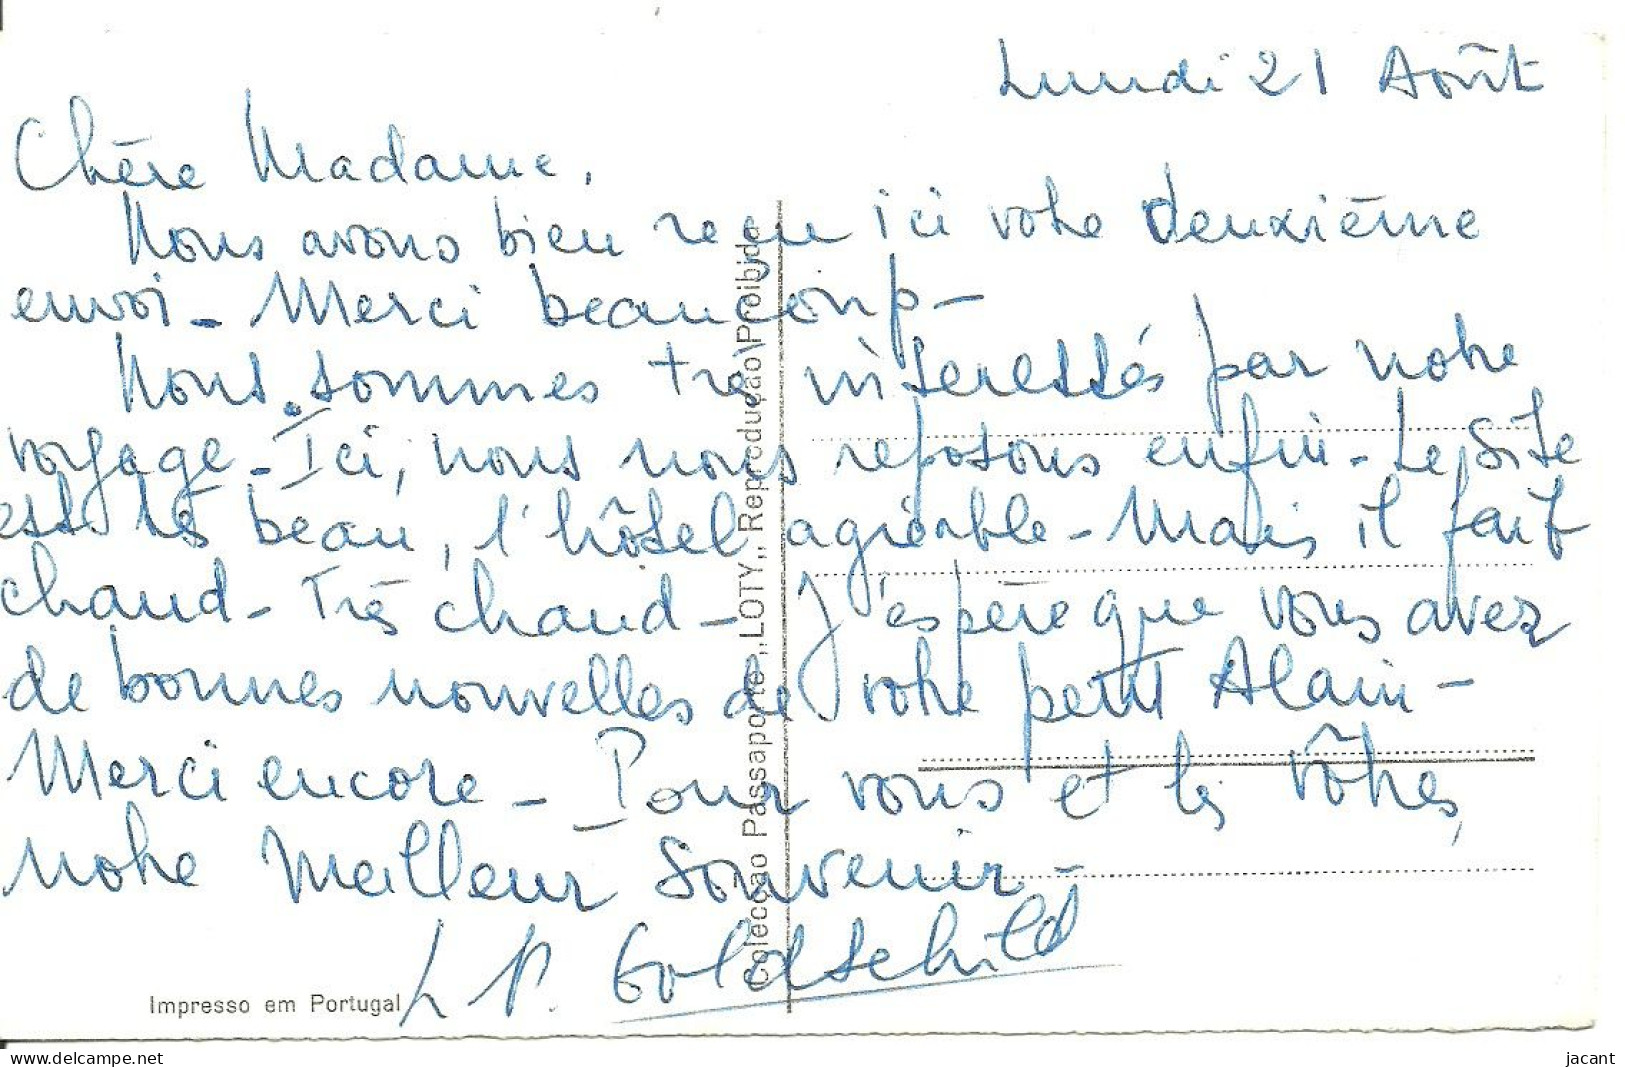 Lundi 21 Août
Chère Madame,
Nous avons bien reçu ici votre deuxième
envoi - Merci beaucoup -
Nous sommes très interessés par notre
voyage - Ici, nous nous reposons enfin - Le site
est très beau, l'hôtel agréable - Mais il fait
chaud - Très chaud - J'espère que vous avez
de bonnes nouvelles de votre petit Alain -
Merci encore - Pour vous et les vôtres,
notre Meilleur Souvenir -
L P. Goldschild
Impresso em Portugal
Colecção Passaporte „LOTY„ Reprodução Proibida
delcampe.net
jacant